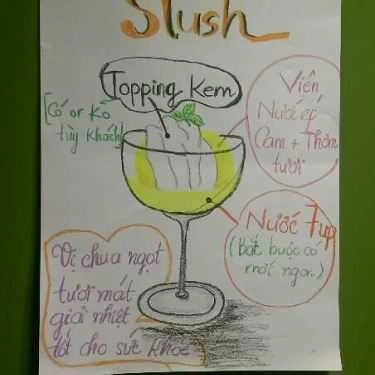 Slush
Topping Kem
[Có or Ko
tùy khách]
Viên
Nước ép
Cam + Thơm
tươi
Nước 7up
(Bắt buộc có
mới ngon.)
Vị chua ngọt
tươi mát
giải nhiệt
tốt cho sức khỏe